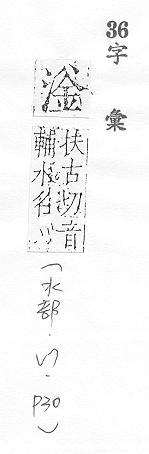 36字彙
滏
扶古切音
輔水名〢
(水部.〢.P30)